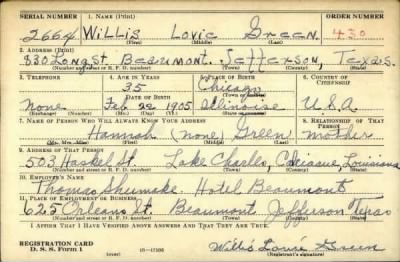 SERIAL NUMBER 1. NAME (Print) ORDER NUMBER
2664 Willis Lovie Green 430
(First) (Middle) (Last)
2. ADDRESS (Print)
830 Long St. Beaumont. Jefferson, Texas.
(Number and street or R. F. D. number) (Town) (County) (State)
3. TELEPHONE 4. AGE IN YEARS 5. PLACE OF BIRTH 6. COUNTRY OF CITIZENSHIP
35 Chicago
DATE OF BIRTH (Town or county)
None Feb 22 1905 Illinoise U.S.A
(Mo.) (Day) (Yr.) (State or country)
7. NAME OF PERSON WHO WILL ALWAYS KNOW YOUR ADDRESS 8. RELATIONSHIP OF THAT PERSON
Hannah (none) Green mother
(Mr., Mrs., Miss) (First) (Middle) (Last)
9. ADDRESS OF THAT PERSON
503 Haskel St. Lake Charles, Louisiana
(Number and street or R. F. D. number) (Town) (County) (State)
10. EMPLOYER'S NAME
Thomas Shumake. Hotel Beaumont
11. PLACE OF EMPLOYMENT OR BUSINESS
625 Orleans St. Beaumont Jefferson Texas
(Number and street or R. F. D. number) (Town) (County) (State)
I AFFIRM THAT I HAVE VERIFIED ABOVE ANSWERS AND THAT THEY ARE TRUE.
REGISTRATION CARD
D. S. S. Form 1 (over) Willis Lovie Green
(Registrant's signature)